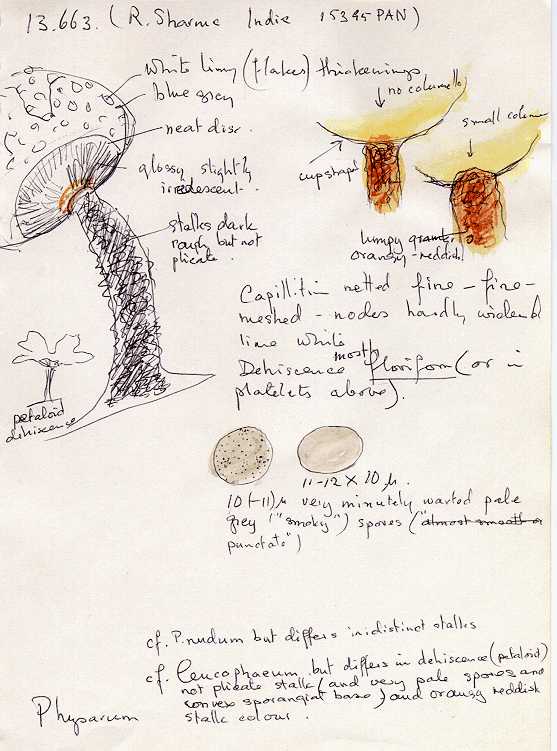 13.663. (R. Sharma India 15345 PAN)
White limy (flakes) thickenings
blue grey
neat disc
glossy slightly
iredescent.
stalks dark
rough but not
plicate.
no columella
small colume
cup shaped
lumpy
orangy-reddish
Capillitium netted fine-fine-
meshed - nodes hardly widened
lime white
Dehiscence mostly floriform (or in
platelets above).
petaloid
dehiscense
11-12 x 10 µ.
10 (-11) µ very minutely warted pale
grey ("smoky") spores ("almost smooth or
punctate")
cf. P. nudum but differs in distinct stalks
cf. leucophaeum but differs in dehiscence (petaloid)
not plicate stalk (and very pale spores and
convex sporangial base) and orangy reddish
stalk colour.
Physarum